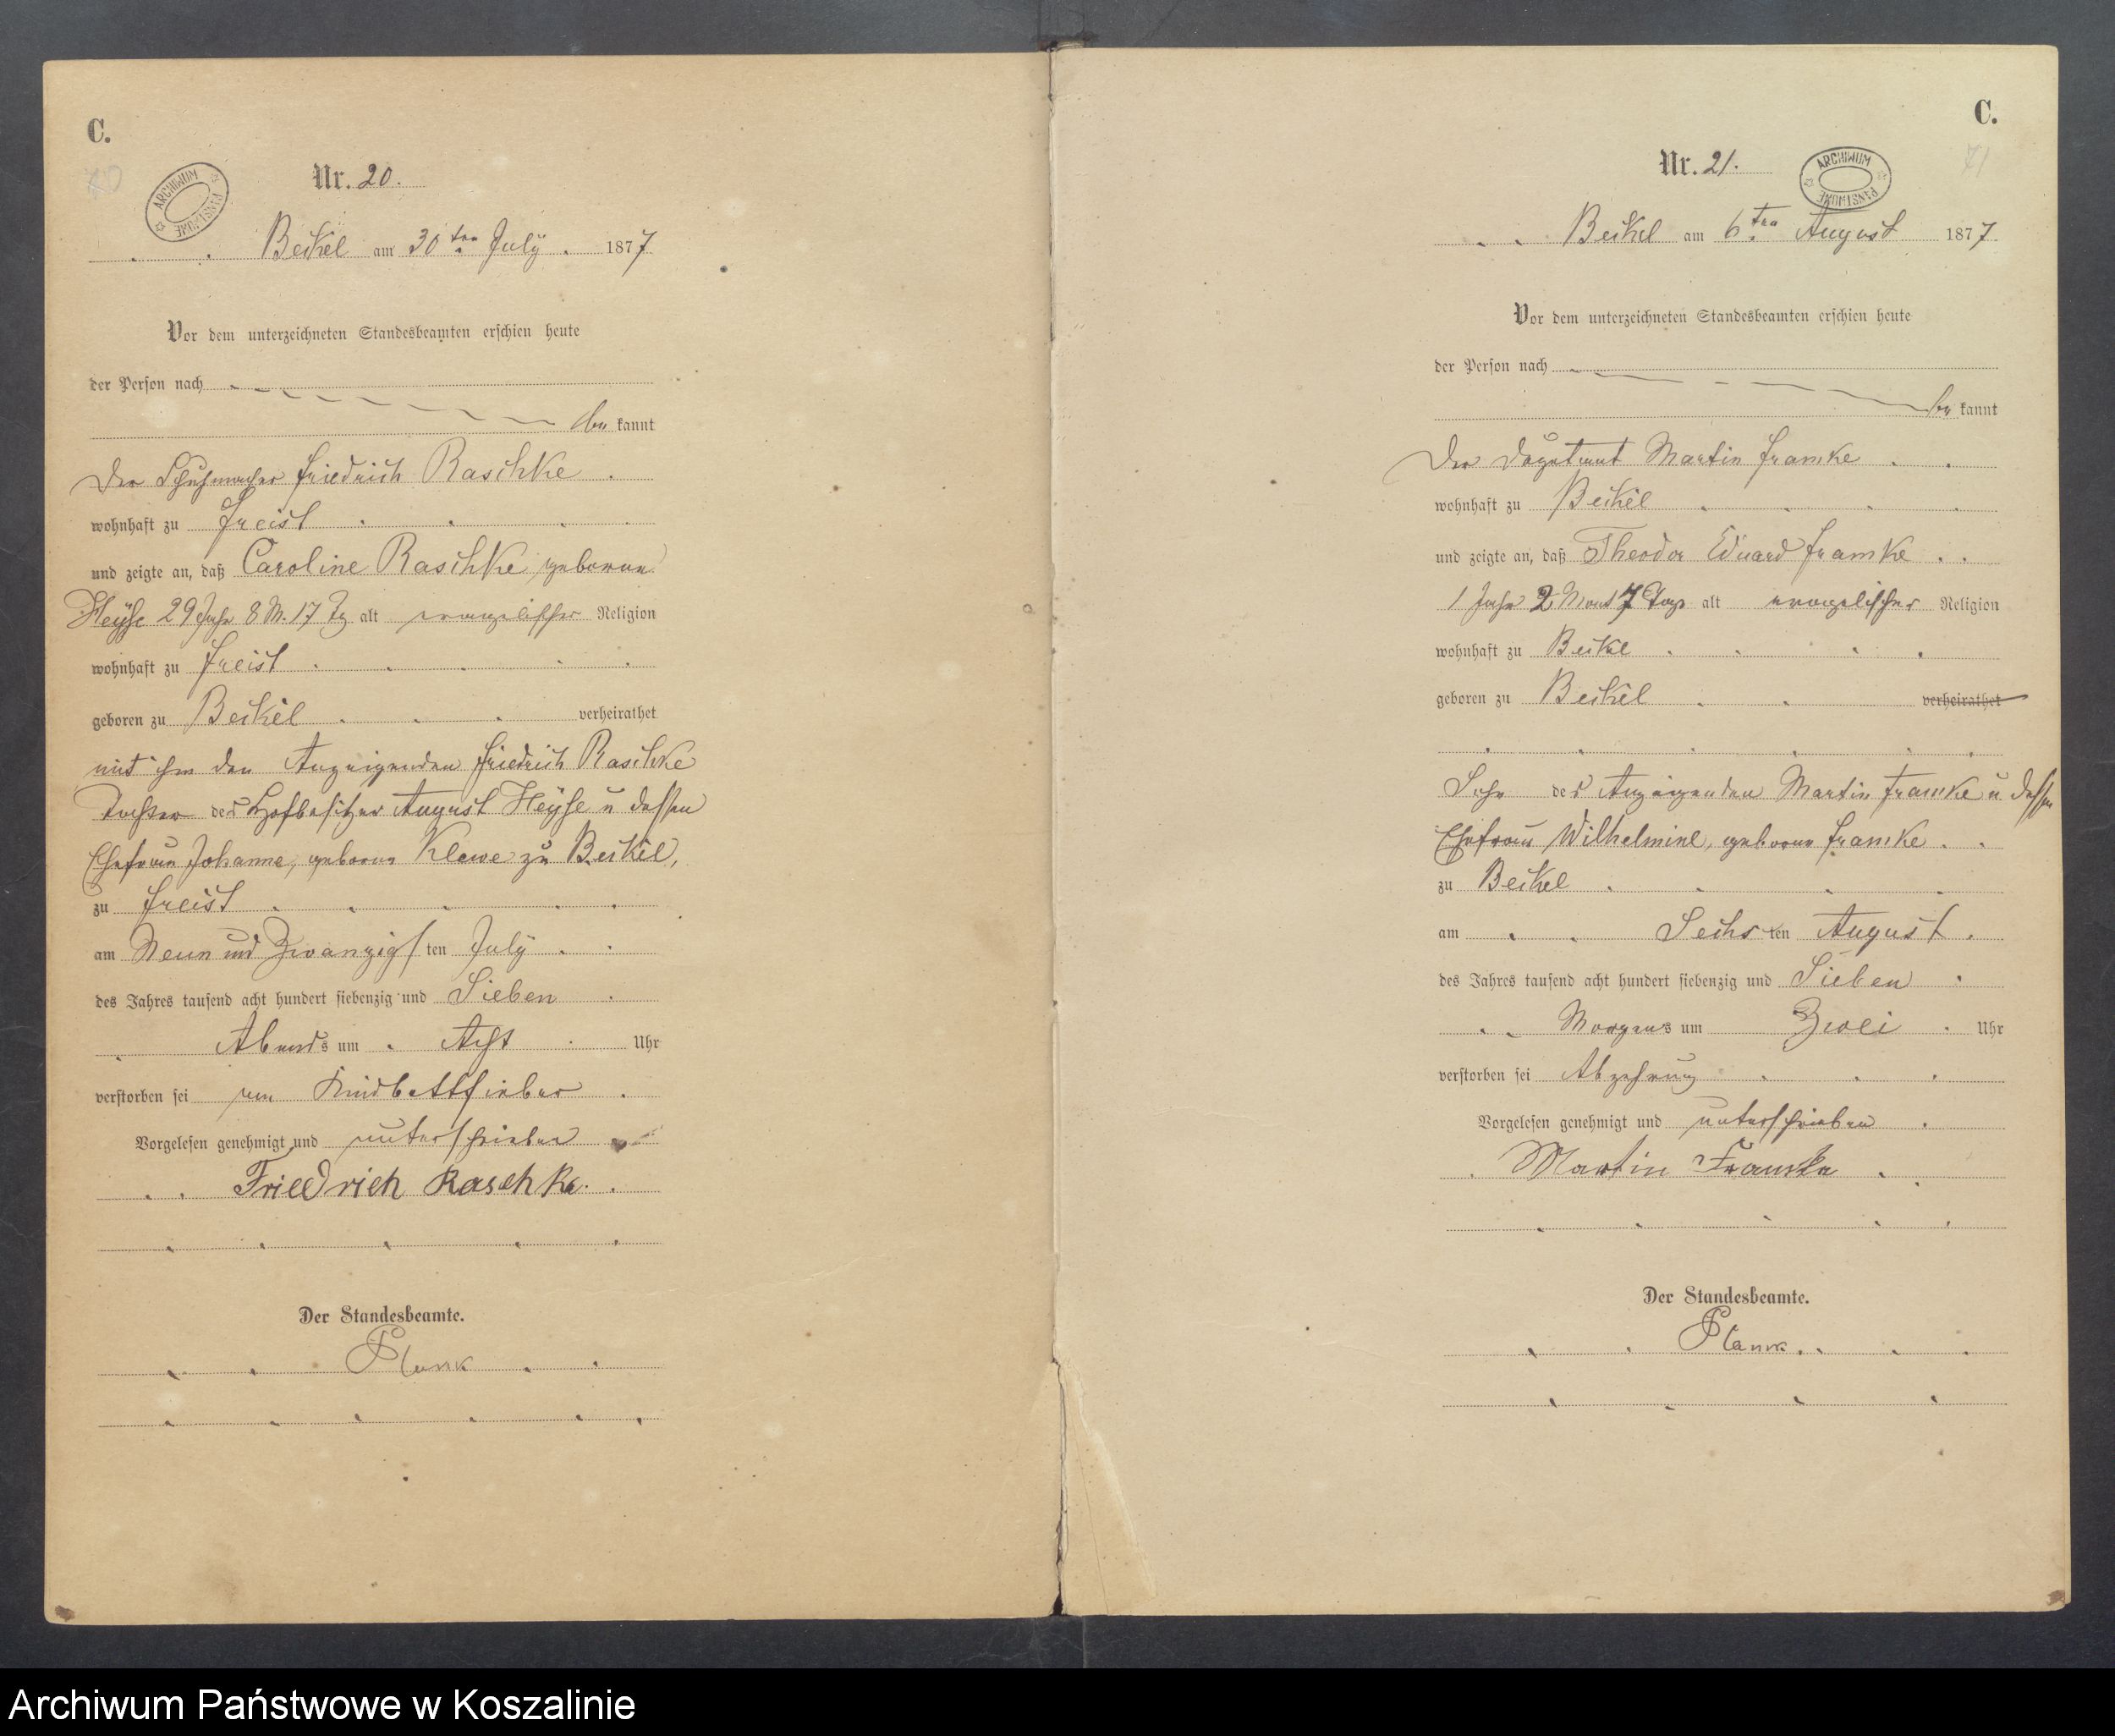 C.
70
ARCHIWUM PAŃSTWOWE
Nr. 20.
Beikel am 30ten July 1877
Vor dem unterzeichneten Standesbeamten erschien heute
der Person nach
be kannt
Der Schuhmacher Friedrich Raschke
wohnhaft zu Freist
und zeigte an, daß Caroline Raschke geborne
Heyse 29 Jahr 8 M. 17 Tg alt evangelischer Religion
wohnhaft zu Freist
geboren zu Beikel verheirathet
mit ihm den Anzeigenden Friedrich Raschke
Tochter des Hofbesitzer August Heyse u dessen
Ehefrau Johanne, geborne Klewe zu Beikel,
zu Freist
am Neun und Zwanzigsten July
des Jahres tausend acht hundert siebenzig und Sieben
Abends um Acht Uhr
verstorben sei am Kindbettfieber
Vorgelesen genehmigt und unterschrieben
Friedrich Raschke.
Der Standesbeamte.
Plank
C.
71
ARCHIWUM PAŃSTWOWE
Nr. 21.
Beikel am 6ten August 1877
Vor dem unterzeichneten Standesbeamten erschien heute
der Person nach
be kannt
Der Martin Framke
wohnhaft zu Beikel
und zeigte an, daß Theodor Eduard Framke
1 Jahr 2 Monat 7 Tage alt evangelischer Religion
wohnhaft zu Beikel
geboren zu Beikel verheirathet
Sohn des Anzeigenden Martin Framke u dessen
Ehefrau Wilhelmine, geborne Framke
zu Beikel
am Sechsten August
des Jahres tausend acht hundert siebenzig und Sieben
Morgens um Zwei Uhr
verstorben sei Abzehrung
Vorgelesen genehmigt und unterschrieben
Martin Framke
Der Standesbeamte.
Plank
Archiwum Państwowe w Koszalinie